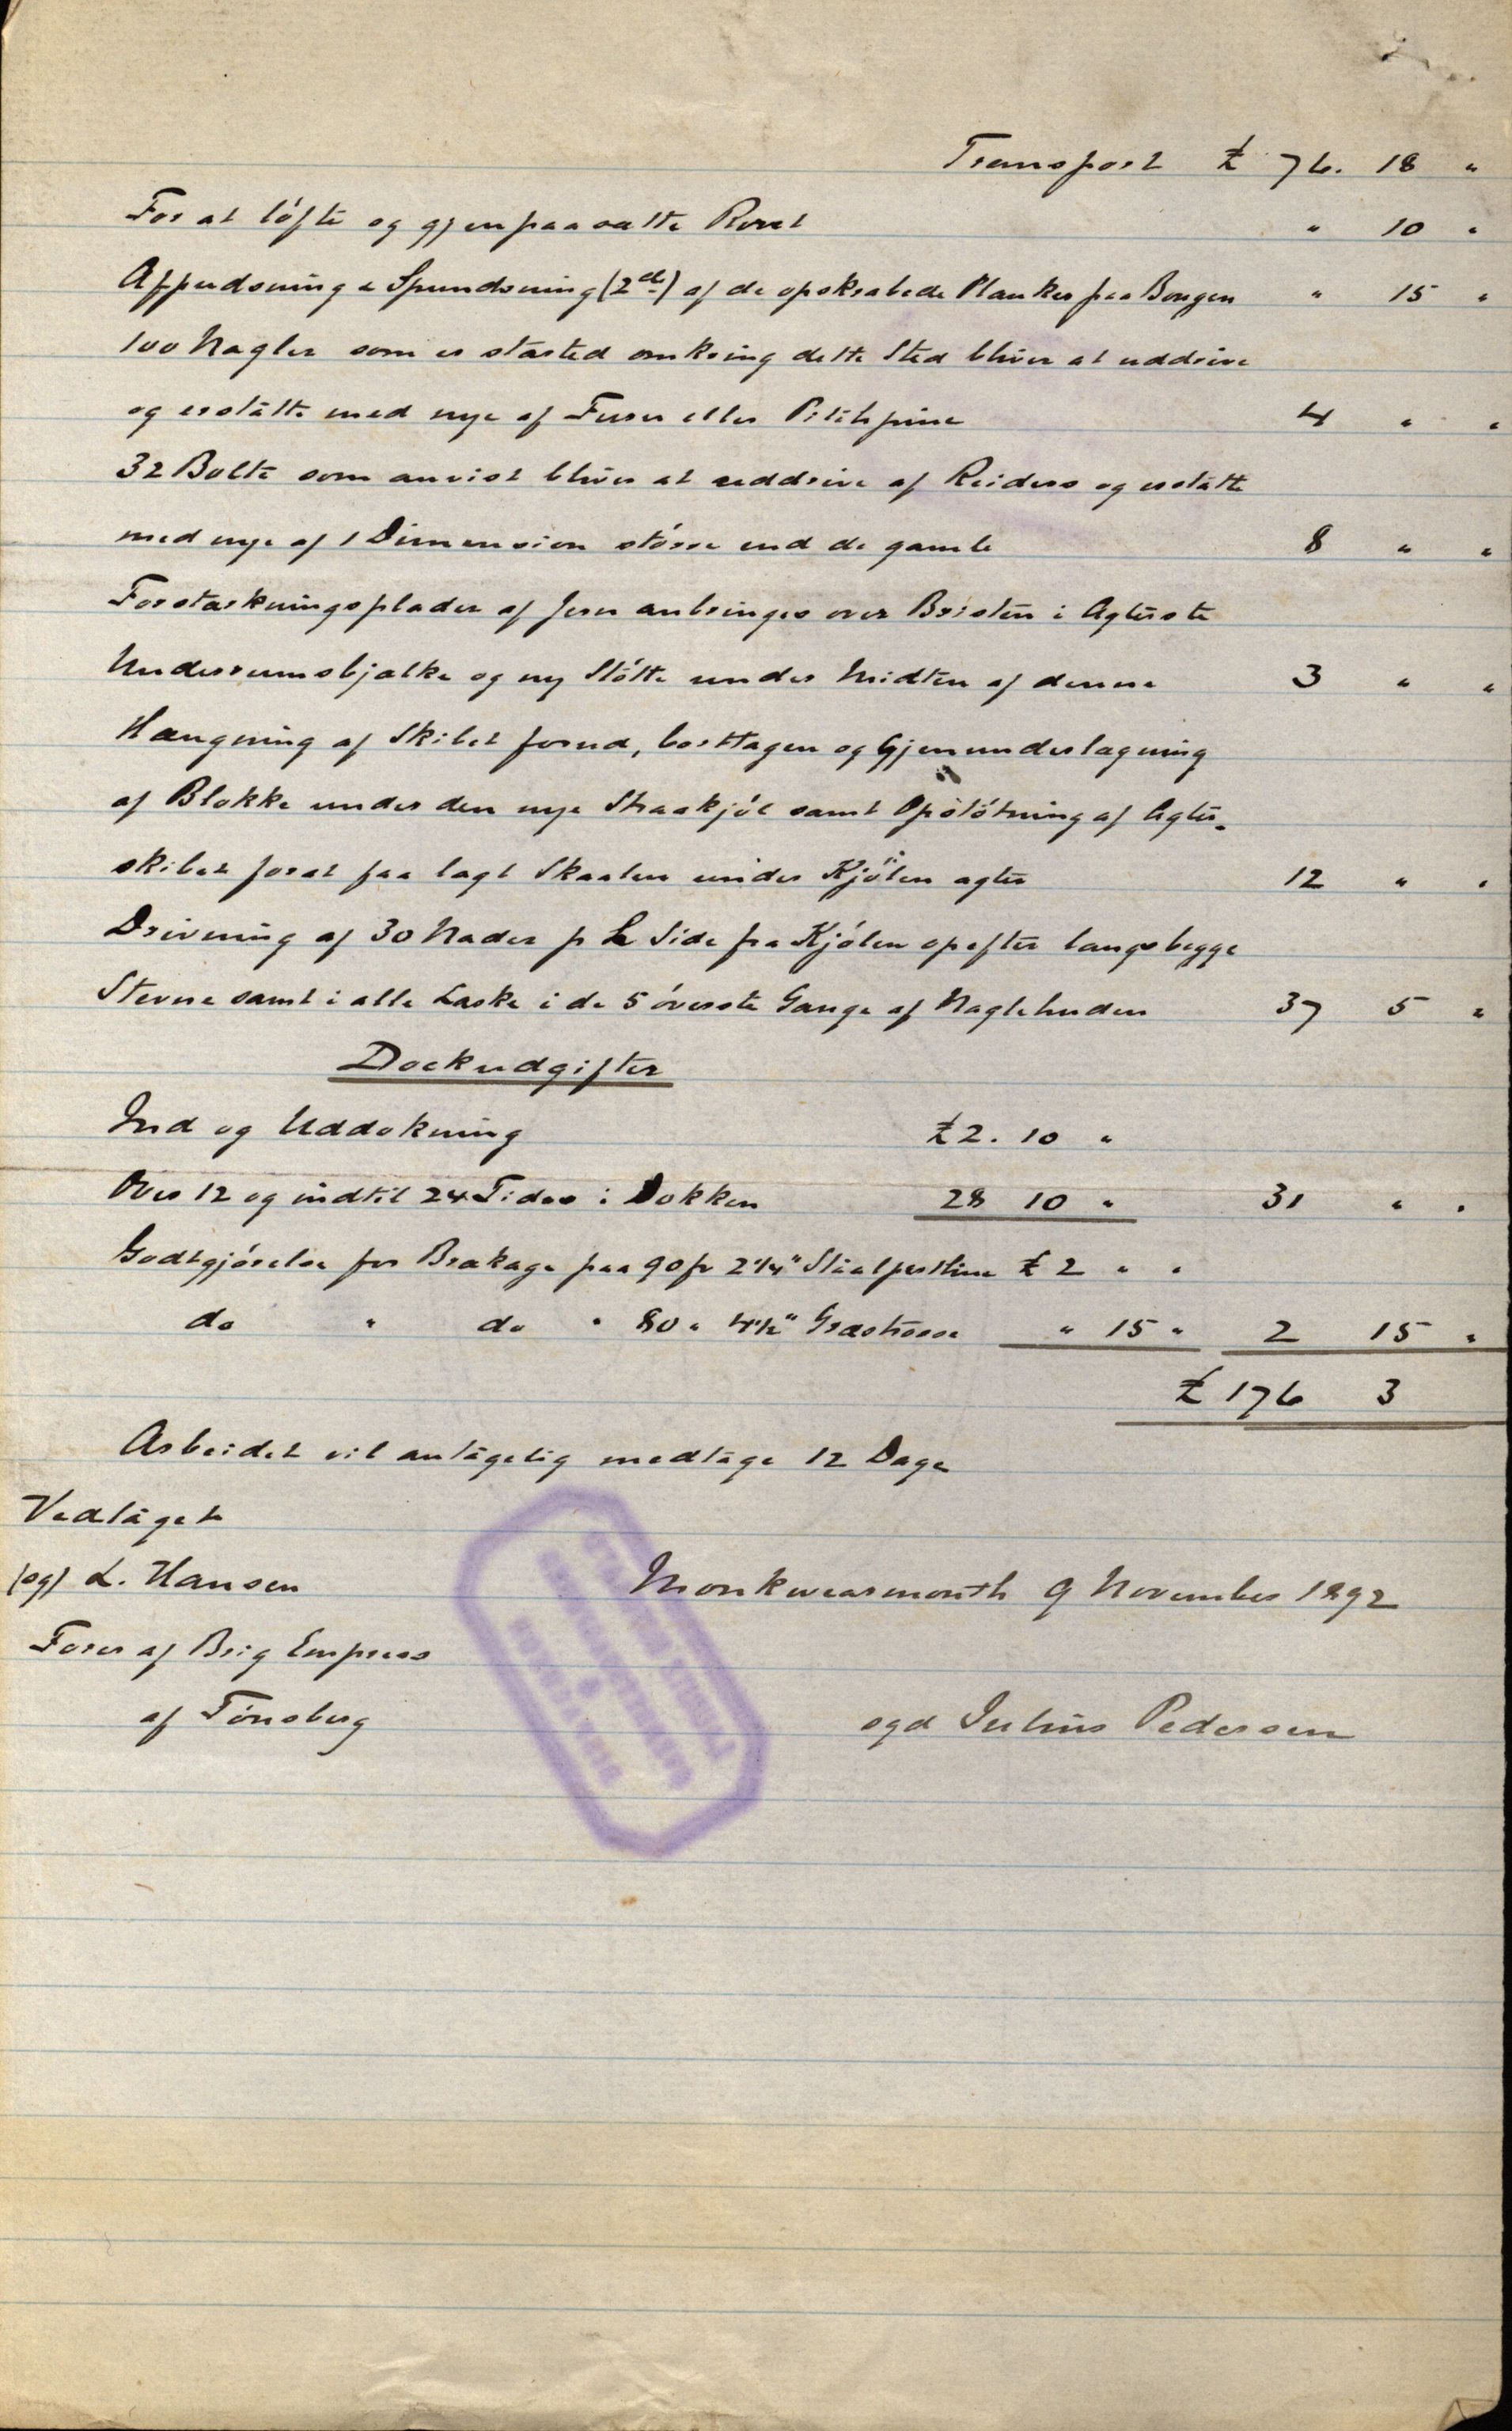 Transport £ 76. 18 "
For at löfte og gjenpaasætte Roret " 10 "
Afpudsning & Spundsning (2de) af de opskrabede Planker paa Bougen " 15 "
100 Nagler som er stærted omkring dette Sted bliver at uddrive
og erstatte med nye af Furu eller Pitchpine 4 " "
32 Bolte som anvist bliver at uddrive af Reiders og erstatte
med nye af 1 Dimension störe end de gamle 8 " "
Forstærkningsplader af Jern anbringes over Bristen i Agterste
Underrumsbjælke og ny Stötte under Midten af denne 3 " "
Hængning af Skibet forud, borttagen og Gjenunderlægning
af Blokke under den nye Straakjöl samt Opslötning af Agter-
skibet forat faa lagt Skaalen under Kjölen agter 12 " "
Drivning af 30 Nader p Le Side fra Kjölen opefter langs begge
Stevne samt i alle Laske i de 5 överste Gange af Naglehuden 37 5 "
Dockudgifter
Ind og Uddokning £ 2. 10 "
Over 12 og indtil 24 Tides i Dokken 28 10 " 31 " "
Godtgjörelse for Brækage paa 90 fv 2 1/4" Staalpertline £ 2 " "
do " do " 80 " 4 1/2" Græstrosse " 15 " 2 15 "
£ 176 3
Arbeidet vil antagelig medtage 12 Dage
Vedtaget
(sg) L. Hansen
Monkwearmouth 9 November 1892
Förer af Brig Empress
af Tönsberg
sgd Julius Pedersen